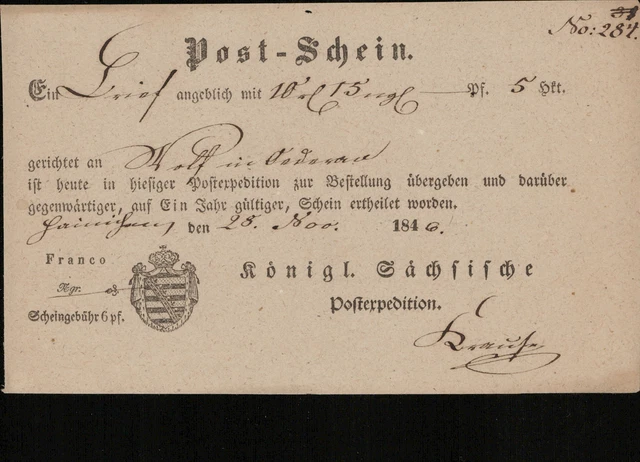 No: 284.
Post-Schein.
Ein Brief angeblich mit 10 rl 15 ngl — Pf. 5 Hkt.
gerichtet an Wolf in Oederan
ist heute in hiesiger Postexpedition zur Bestellung übergeben und darüber
gegenwärtiger, auf Ein Jahr gültiger, Schein ertheilet worden.
Hainichen, den 28. Nov. 1846.
Franco
Königl. Sächsische
Ngr.
Postexpedition.
Scheingebühr 6 pf.
Krause